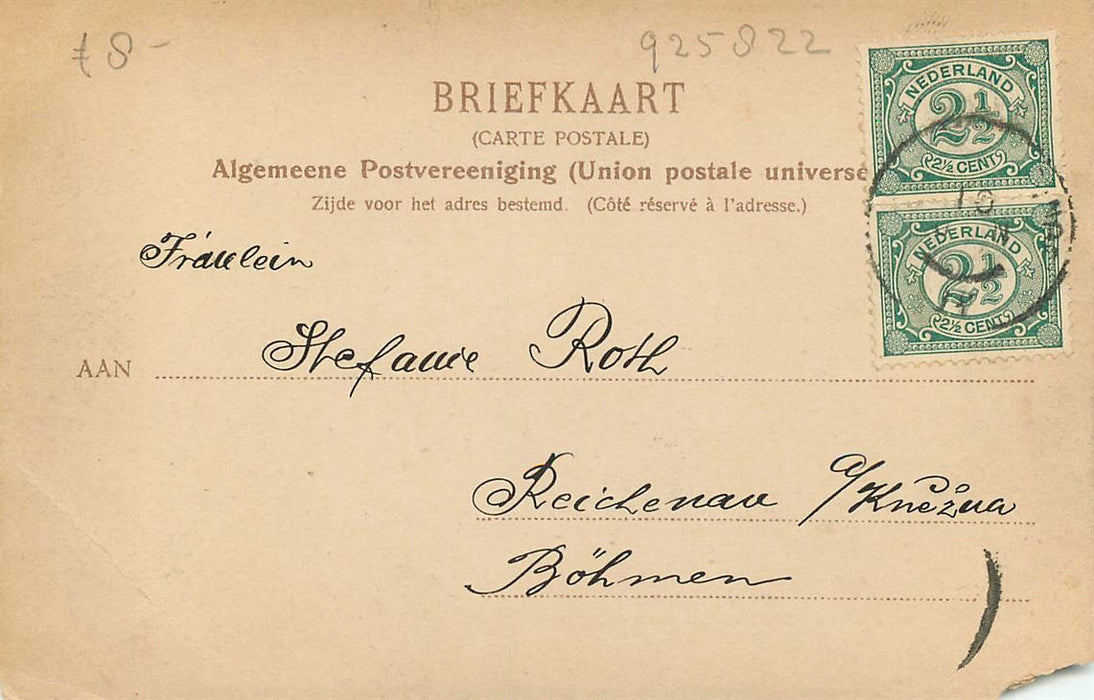 £8-
925822
BRIEFKAART
(CARTE POSTALE)
Algemeene Postvereeniging (Union postale universe
Zijde voor het adres bestemd. (Côté réservé à l'adresse.)
NEDERLAND
2½
2½ CENT
NEDERLAND
2½
2½ CENT
Fräulein
AAN Stefanie Roth
Reichenau a/Kněžna
Böhmen